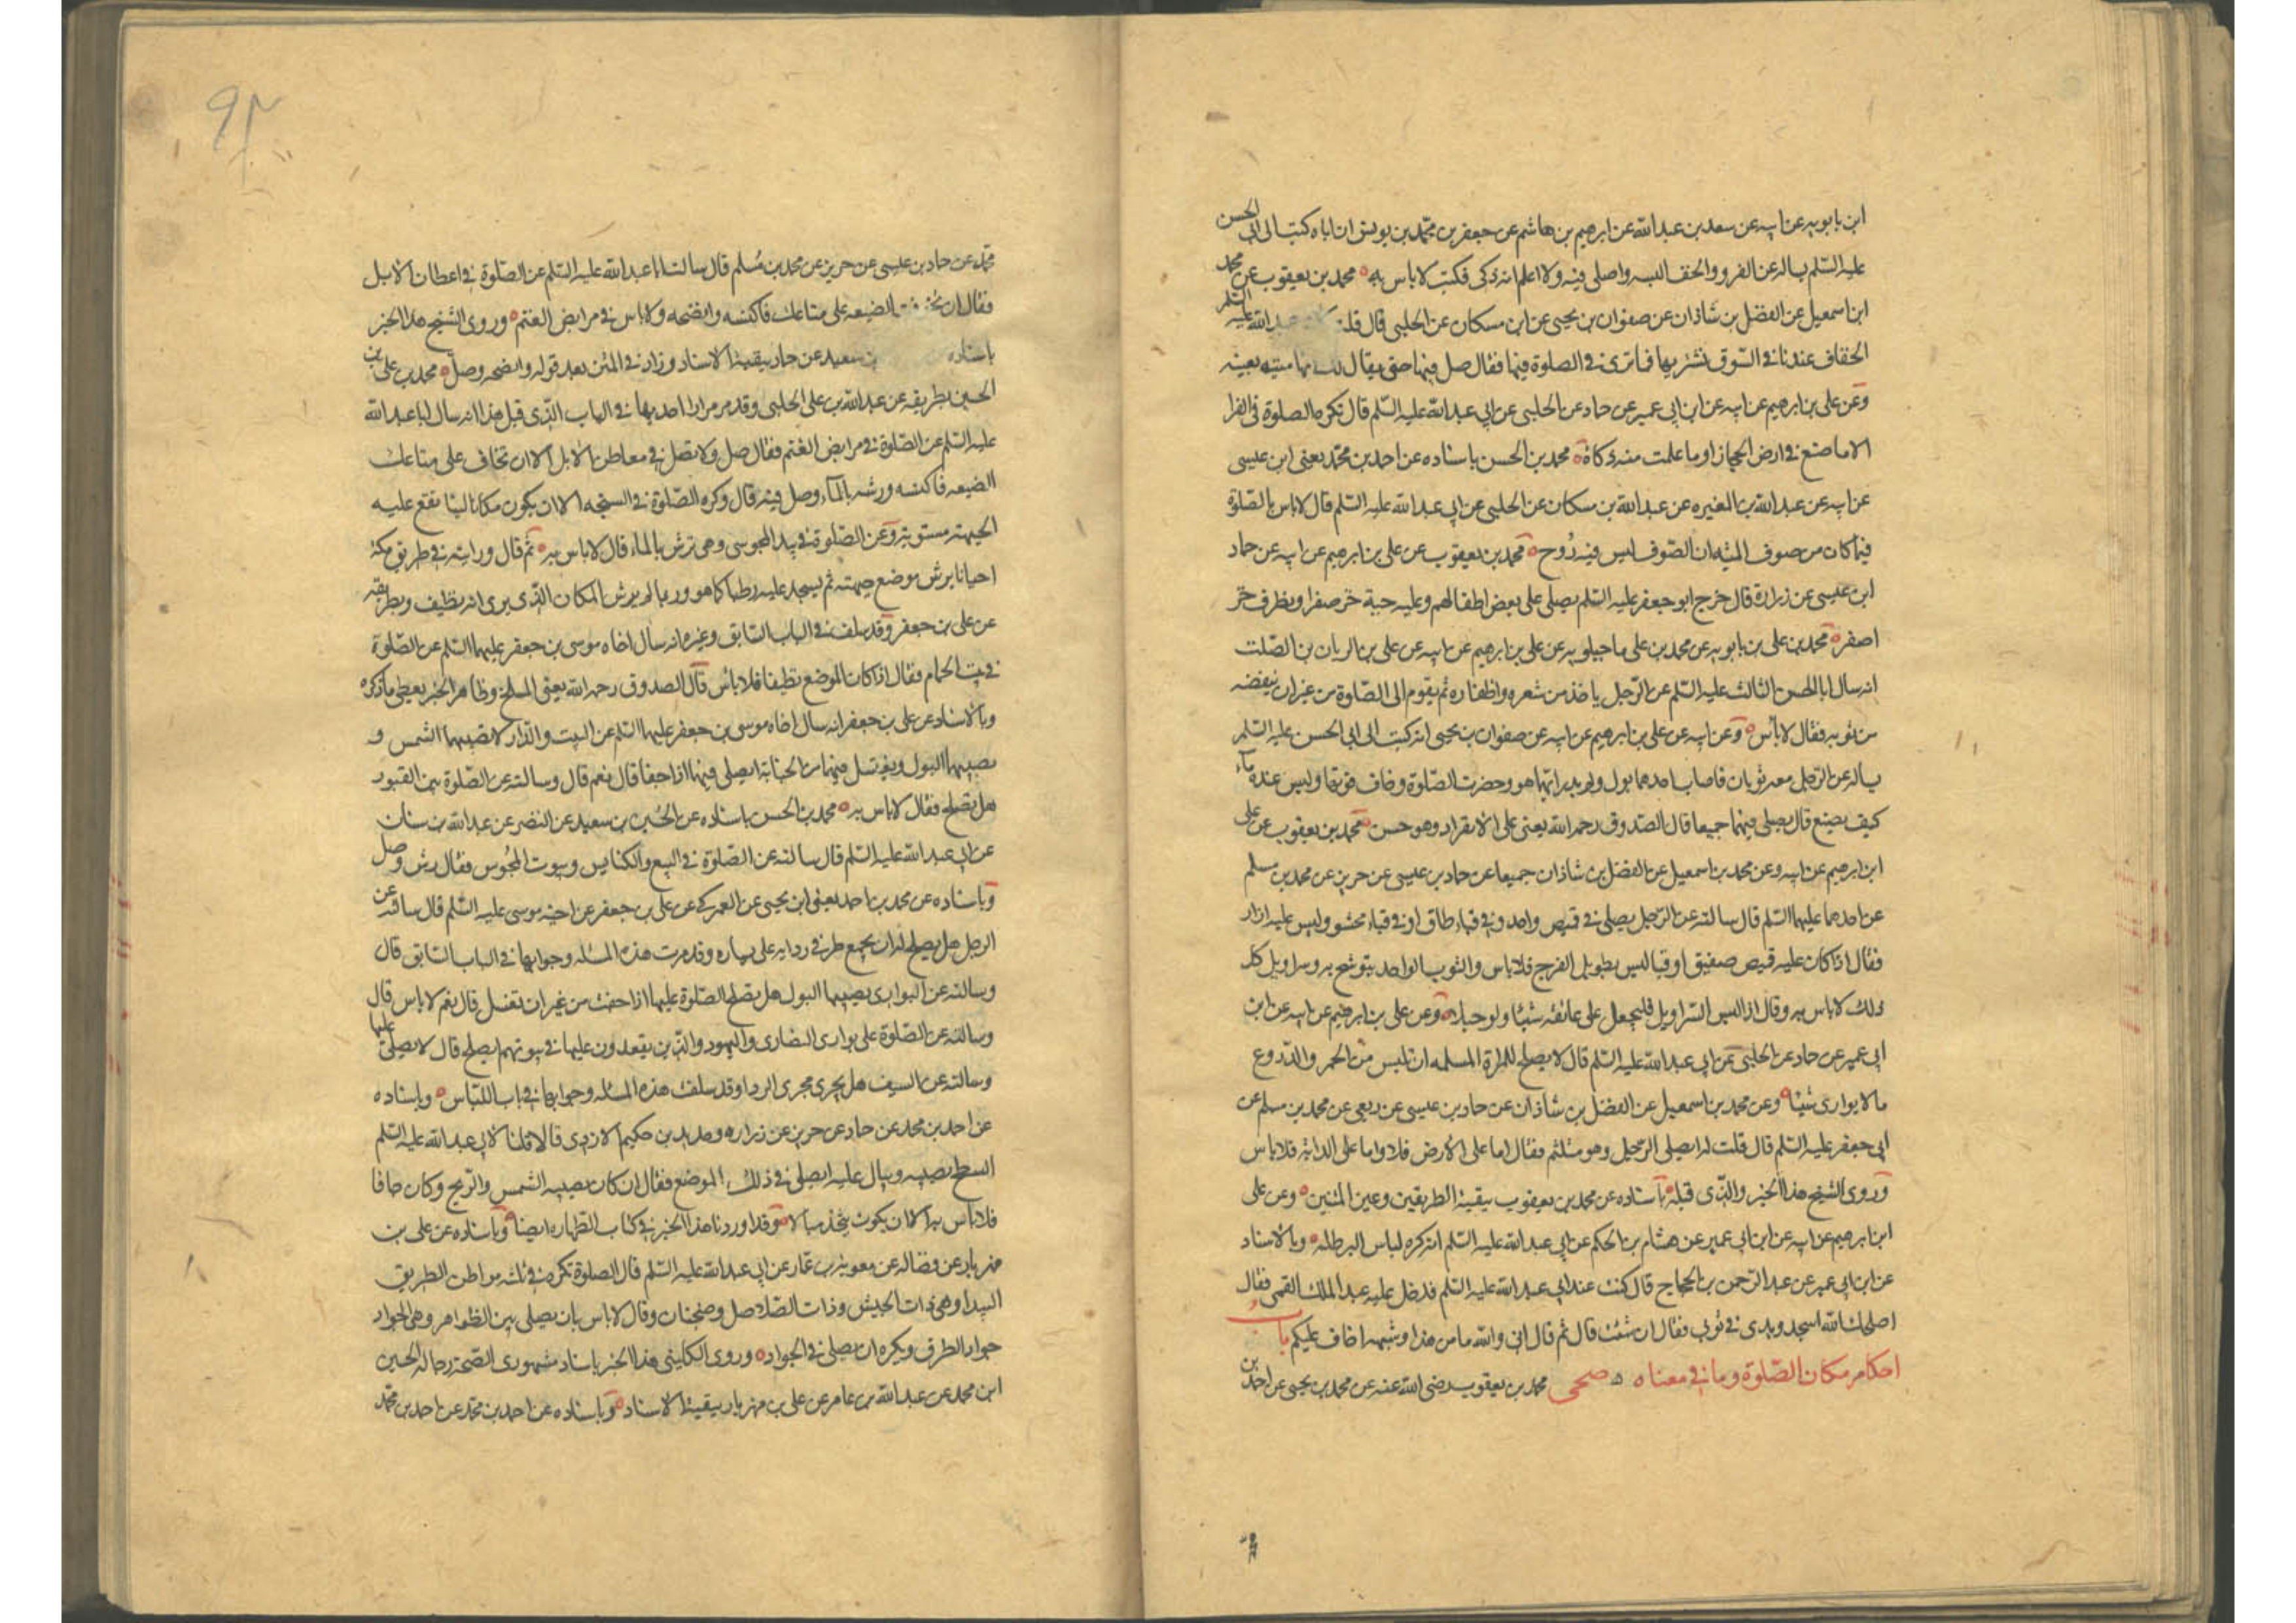 ابن بابويه عن ابيه عن سعد بن عبد الله عن ابرهيم بن هاشم عن جعفر بن محمد بن يونس ان اباه كتب الى ابي الحسن
عليه السلم يساله عن الفرو والخف البسه واصلى فيه ولا اعلم انه ذكى فكتب لا باس به محمد بن يعقوب عن محمد
ابن اسمعيل عن الفضل بن شاذان عن صفوان بن يحيى عن ابن مسكان عن الحلبى قال قلت عبد الله عليه السلم
الخفاف عندنا فى السوق نشتريها فما ترى فى الصلوة فيها فقال صل فيها حتى يقال لك انها ميته بعينه
وعن على بن ابرهيم عن ابيه عن ابن ابى عمير عن حماد عن الحلبى عن ابى عبد الله عليه السلم قال تكره الصلوة فى الفرا
الا ما صنع فى ارض الحجاز او ما علمت منه ذكاة محمد بن الحسن باسناده عن احمد بن محمد يعنى ابن عيسى
عن ابيه عن عبد الله بن المغيره عن عبد الله بن مسكان عن الحلبى عن ابى عبد الله عليه السلم قال لا باس بالصلوة
فيما كان من صوف الميته ان الصوف ليس فيه رُوح محمد بن يعقوب عن على بن ابرهيم عن ابيه عن حماد
ابن عيسى عن زرارة قال خرج ابو جعفر عليه السلم يصلى على بعض اطفالهم وعليه جبة خز صفرا ومطرف خز
اصفر محمد بن على بن بابويه عن محمد بن على ماجيلويه عن على بن ابرهيم عن ابيه عن على بن الريان بن الصلت
انه سال ابا الحسن الثالث عليه السلم عن الرجل ياخذ من شعره واظفاره ثم يقوم الى الصلوة من غير ان ينفضه
من ثوبه فقال لا بأس وعن ابيه عن على بن ابرهيم عن ابيه عن صفوان بن يحيى انه كتب الى ابى الحسن عليه السلم
يساله عن الرجل معه ثوبان فاصاب احدهما بول ولم يدر ايهما هو وحضرت الصلوة وخاف فوتها وليس عنده ماء
كيف يصنع قال يصلى فيهما جميعا قال الصدوق رحمه الله يعنى على الانفراد وهو حسن محمد بن يعقوب عن على
ابن ابرهيم عن ابيه وعن محمد بن اسمعيل عن الفضل بن شاذان جميعا عن حماد بن عيسى عن حريز عن محمد بن مسلم
عن احدهما عليهما السلم قال سالته عن الرجل يصلى فى قميص واحد وفى قباء طاق او فى قباء محشو وليس عليه ازار
فقال اذا كان عليه قميص صفيق او قبا ليس بطويل الفرج فلا باس والثوب الواحد يتوشح به وسراويل كل
ذلك لا باس به وقال اذا لبس السراويل فليجعل على عاتقه شيئا ولو حبلا وعن على بن ابرهيم عن ابيه عن ابن
ابى عمير عن حماد عن الحلبى عن ابى عبد الله عليه السلم قال لا يصلح للمراة المسلمه ان تلبس من الخمر والدروع
ما لا يوارى شيئا وعن محمد بن اسمعيل عن الفضل بن شاذان عن حماد بن عيسى عن ربعى عن محمد بن مسلم عن
ابى جعفر عليه السلم قال قلت له ايصلى الرجل وهو متلثم فقال اما على الارض فلا واما على الدابة فلا باس
وروى الشيخ هذا الخبر والذى قبله باسناده عن محمد بن يعقوب ببقية الطريقين وعين المتنين وعن على
ابن ابرهيم عن ابيه عن ابن ابى عمير عن هشام بن الحكم عن ابى عبد الله عليه السلم انه كره لباس البرطله وبالاسناد
عن ابن ابى عمير عن عبد الرحمن بن الحجاج قال كنت عند ابى عبد الله عليه السلم فدخل عليه عبد الملك القمى فقال
اصلحك الله اسجد ويدى فى ثوبى فقال ان شئت قال ثم قال انى والله ما من هذا وشبهه اخاف عليكم باب
احكام مكان الصلوة وما فى معناه صحى محمد بن يعقوب رضى الله عنه عن محمد بن يحيى عن احمد بن
محمد عن حماد بن عيسى عن حريز عن محمد بن مُسلم قال سالت ابا عبد الله عليه السلم عن الصلوة فى اعطان الابل
فقال ان الضيعه على متاعك فاكنسه وانضحه ولا باس فى مرابض الغنم وروى الشيخ هذا الخبر
باسناده بن سعيد عن حماد ببقية الاسناد وزاد فى المتن بعد قوله وانضحه وصل محمد بن على بن
الحسين بطريقه عن عبد الله بن على الحلبى وقد مر مرارا احديها فى الباب الذى قبل هذا انه سال ابا عبد الله
عليه السلم عن الصلوة فى مرابض الغنم فقال صل ولا تصل فى معاطن الابل الا ان تخاف على متاعك
الضيعه فاكنسه ورشه بالماء وصل فيه قال وكره الصلوة فى السبخه الا ان يكون مكانا لينا تقع عليه
الجبهة مستوية وعن الصلوة فى بيت المجوسى وهى ترش بالماء قال لا باس به ثم قال ورايته فى طريق مكة
احيانا يرش موضع جبهته ثم يسجد عليه رطبا كما هو وربما لم يرش المكان الذى يرى انه نظيف وبطريقه
عن على بن جعفر وقد سلف فى الباب السابق وغيره انه سال اخاه موسى بن جعفر عليهما السلم عن الصلوة
فى بيت الحمام فقال اذا كان الموضع نظيفا فلا باس قال الصدوق رحمه الله يعنى المسلخ وظاهر الخبر يعطى ما ذكره
وبالاسناد عن على بن جعفر انه سال اخاه موسى بن جعفر عليهما السلم عن البيت والدار لا تصيبهما الشمس و
يصيبهما البول ويغتسل فيهما من الجنابة ايصلى فيهما اذا جفا قال نعم قال وسالته عن الصلوة بين القبور
هل تصلح فقال لا باس به محمد بن الحسن باسناده عن الحُسين بن سعيد عن النضر عن عبد الله بن سنان
عن ابى عبد الله عليه السلم قال سالته عن الصلوة فى البيع والكنايس وبيوت المجُوس فقال رش وصل
وباسناده عن محمد بن احمد يعنى ابن يحيى عن العمركى عن على بن جعفر عن اخيه موسى عليه السلم قال سالته عن
الرجل هل يصلح له ان يجمع طرفى ردايه على يساره وقد مرت هذه المسئله وجوابها فى الباب السابق قال
وسالته عن البوارى يصيبها البول هل تصلح الصلوة عليها اذا جفت من غير ان تغسل قال نعم لا باس قال
وسالته عن الصلوة على بوارى النصارى واليهود والذين يقعدون عليها فى بيوتهم ايصلح قال لا يصلى عليها
وسالته عن السيف هل يجرى مجرى الردا وقد سلفت هذه المسئله وجوابها فى باب اللباس وباسناده
عن احمد بن محمد عن حماد عن حريز عن زراره وحديد بن حكيم الازدى قالا قلنا لابى عبد الله عليه السلم
السطح يصيبه ويبال عليه ايصلى فى ذلك الموضع فقال ان كان يصيبه الشمس والريح وكان جافا
فلا بأس به الا ان يكون يتخذ مبالا وقد اوردنا هذا الخبر فى كتاب الطهاره ايضا وباسناده عن على بن
مهزيار عن فضاله عن معوية بن عمار عن ابى عبد الله عليه السلم قال الصلوة تكره فى ثلثه مواطن الطريق
البيدا وهى ذات الجيش وذات الصلاصل وضجنان وقال لا باس بان يصلى بين الظواهر وهى الجواد
جواد الطرق ويكره ان يصلى فى الجواد وروى الكلينى هذا الخبر باسناد مشهورى الصحة رجاله الحسين
ابن محمد عن عبد الله بن عامر عن على بن مهزيار ببقية الاسناد وباسناده عن احمد بن محمد عن احمد بن محمد